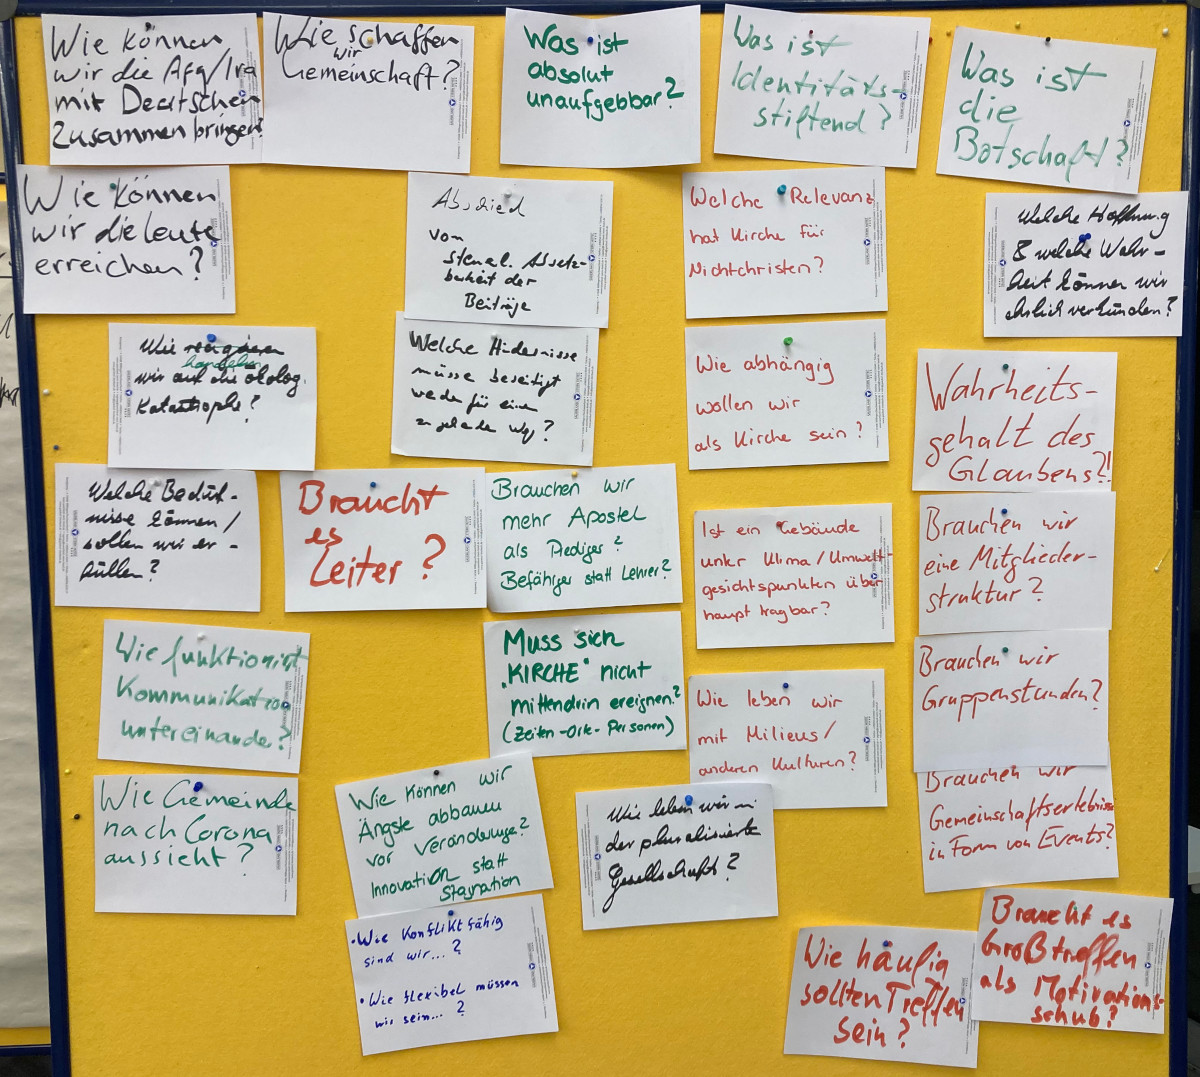 Wie können
wir die Afg/Ira
mit Deutschen
zusammen bringen?
Wie schaffen
wir
Gemeinschaft?
Was ist
absolut
unaufgebbar?
Was ist
Identitäts-
stiftend?
Was ist
die
Botschaft?
Wie können
wir die Leute
erreichen?
Abschied
von
steuerl. Absetz-
barkeit der
Beiträge
Welche Relevanz
hat Kirche für
Nichtchristen?
Welche Hoffnung
& welche Wahr-
heit können wir
ehrlich verkünden?
Wie reagieren
handeln
wir auf die ökolog.
Katastrophe?
Welche Hindernisse
müsse beseitigt
werden für einen
Weg?
Wie abhängig
wollen wir
als Kirche sein?
Wahrheits-
gehalt des
Glaubens?!
Welche Bedürf-
nisse können/
sollen wir er-
füllen?
Braucht
es
Leiter?
Brauchen wir
mehr Apostel
als Prediger?
Befähiger statt Lehrer?
Ist ein Gebäude
unter Klima/Umwelt-
gesichtspunkten über
haupt tragbar?
Brauchen wir
eine Mitglieder-
struktur?
Wie funktioniert
Kommunikation
untereinander?
Muss sich
"KIRCHE" nicht
mittendrin ereignen?
(Zeiten-Orte-Personen)
Wie leben wir
mit Milieus/
anderen Kulturen?
Brauchen wir
Gruppenstunden?
Wie Gemeinde
nach Corona
aussieht?
Wie können wir
Ängste abbauen
vor Veränderung?
Innovation statt
Stagnation
Wie leben wir in
der pluralisierte
Gesellschaft?
Brauchen wir
Gemeinschaftserlebnisse
in Form von Events?
• Wie Konfliktfähig
sind wir...?
• Wie flexibel müssen
wir sein...?
Wie häufig
sollten Treffen
sein?
Braucht es
Großtreffen
als Motivations-
schub?